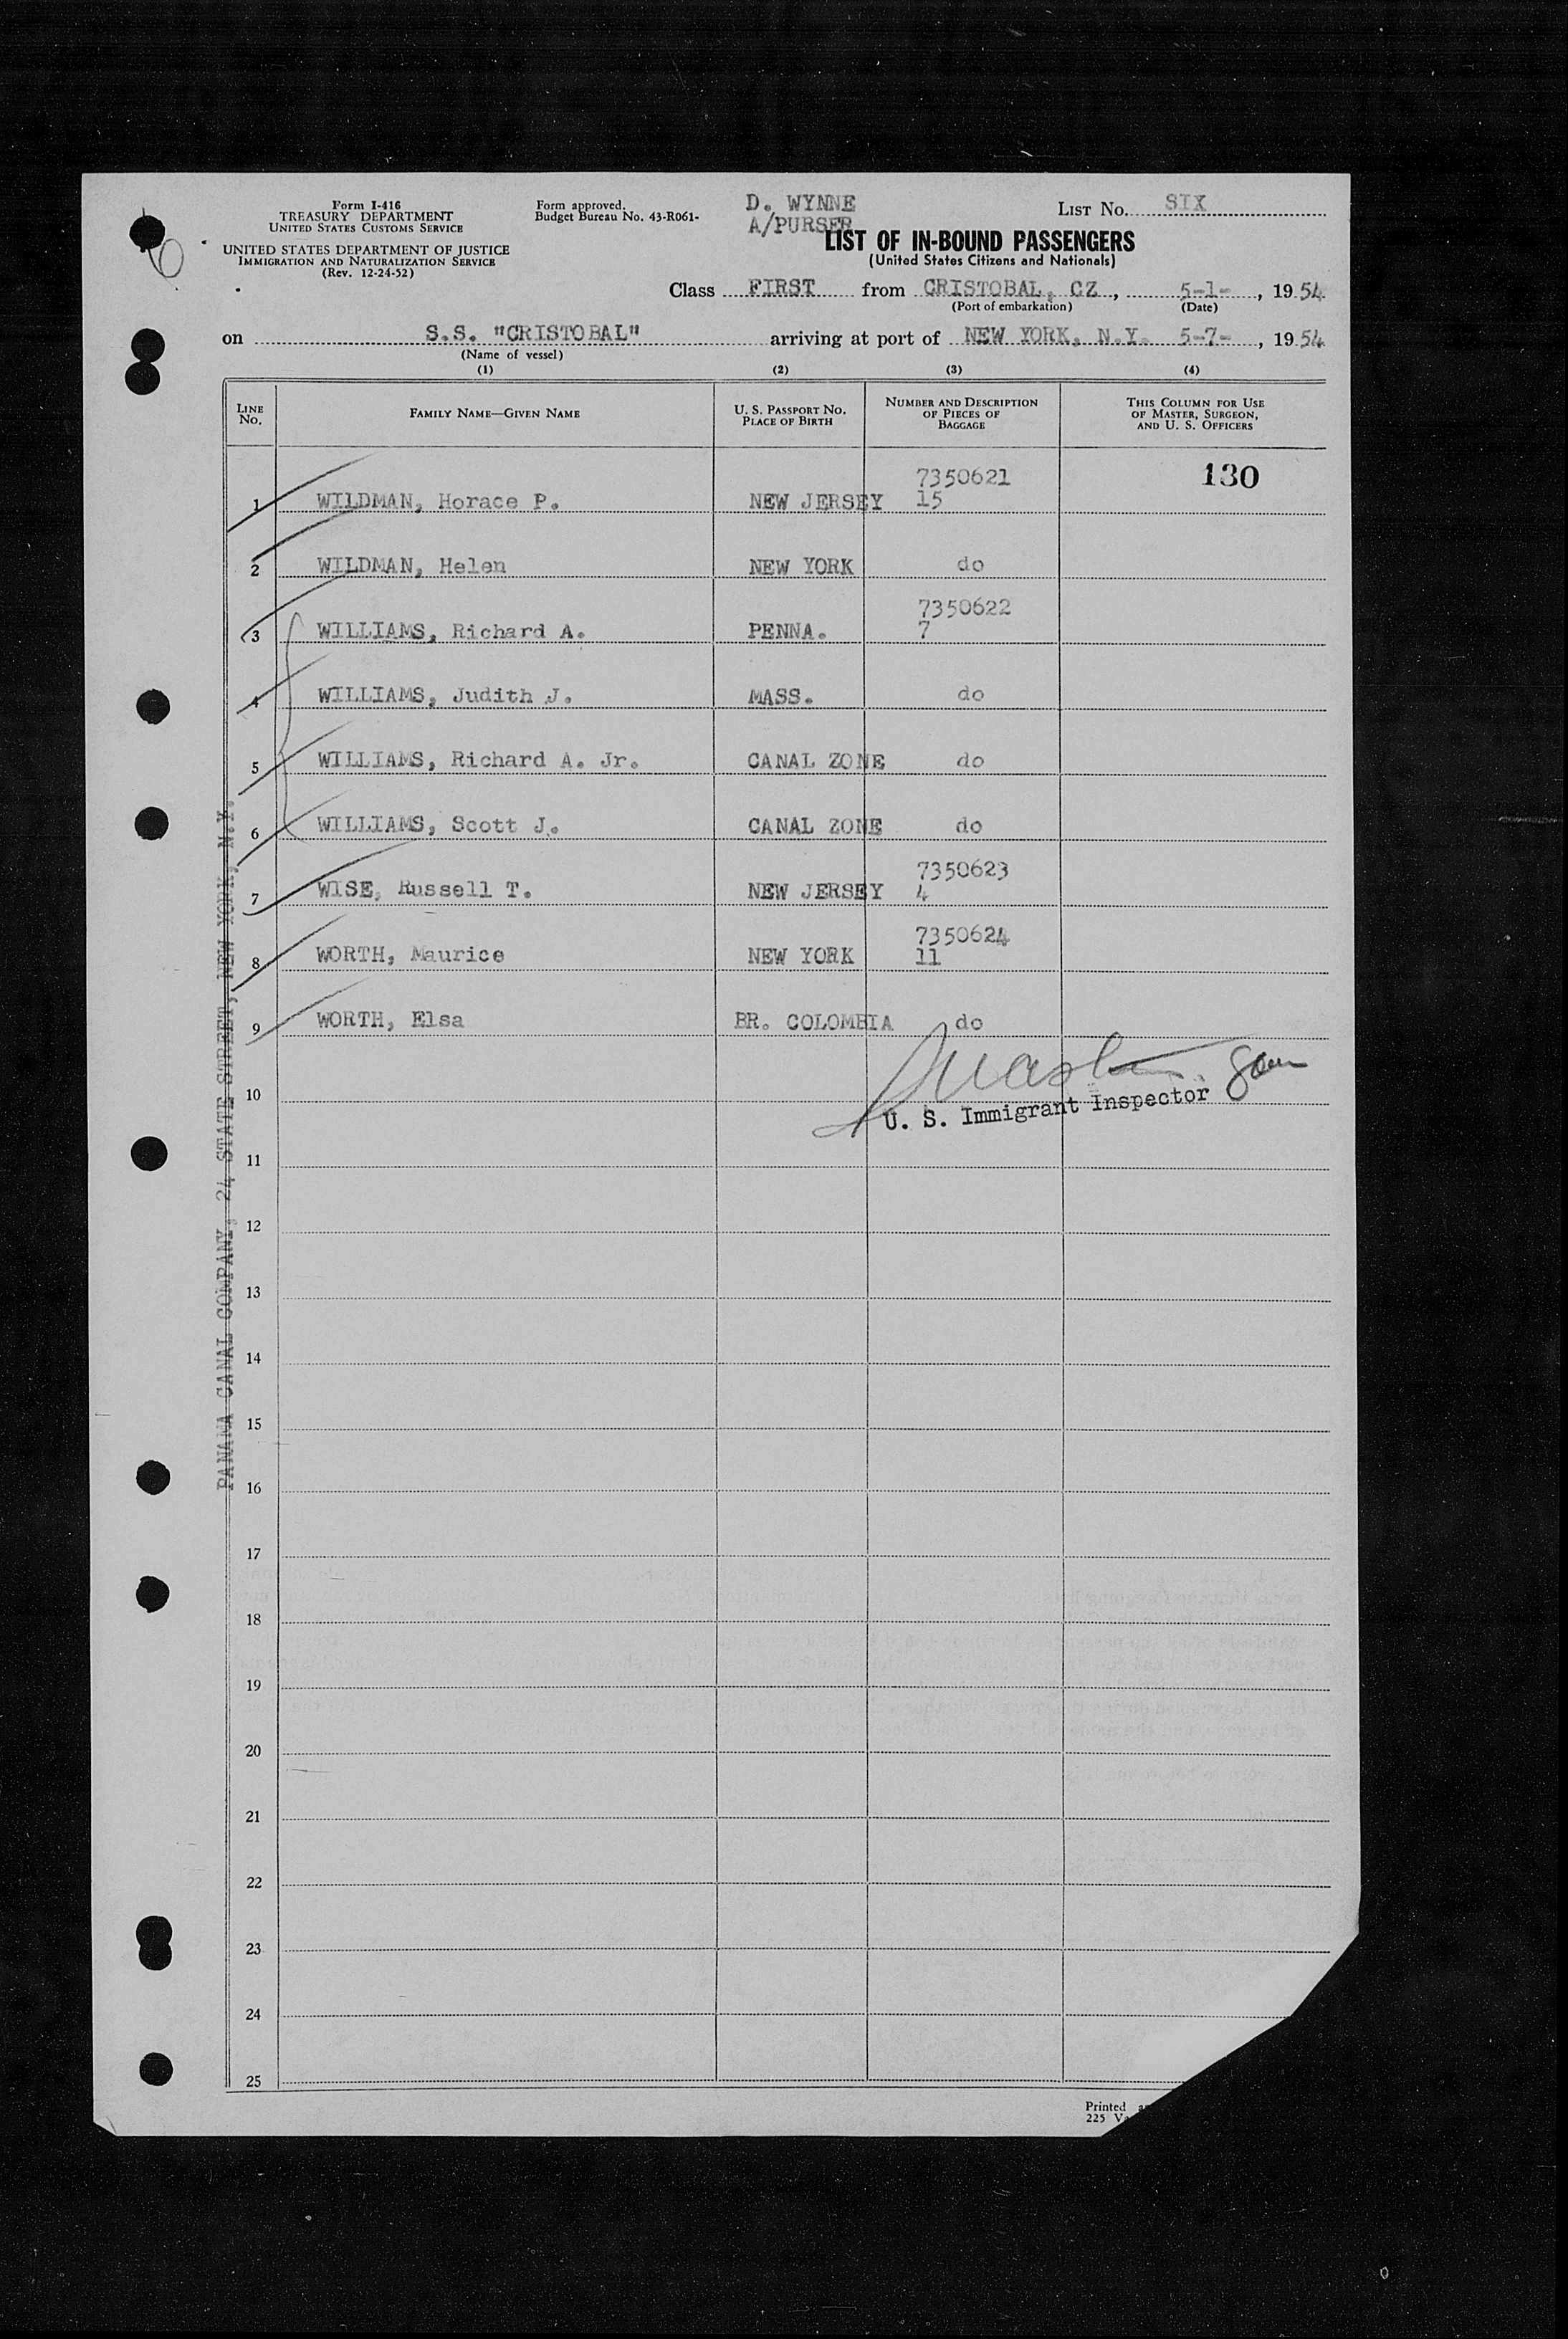 Form I-416
TREASURY DEPARTMENT
UNITED STATES CUSTOMS SERVICE
UNITED STATES DEPARTMENT OF JUSTICE
IMMIGRATION AND NATURALIZATION SERVICE
(Rev. 12-24-52)
Form approved.
Budget Bureau No. 43-R061-
D. WYNNE
A/PURSER
LIST NO. SIX
LIST OF IN-BOUND PASSENGERS
(United States Citizens and Nationals)
Class FIRST from CRISTOBAL, CZ, 5-1-, 1954
(Port of embarkation) (Date)
on S.S. "CRISTOBAL" arriving at port of NEW YORK, N.Y. 5-7-, 1954
(Name of vessel)
(1) (2) (3) (4)
LINE NO. FAMILY NAME—GIVEN NAME U. S. PASSPORT NO. PLACE OF BIRTH NUMBER AND DESCRIPTION OF PIECES OF BAGGAGE THIS COLUMN FOR USE OF MASTER, SURGEON, AND U. S. OFFICERS
7350621 130
1 WILDMAN, Horace P. NEW JERSEY 15
2 WILDMAN, Helen NEW YORK do
7350622
3 WILLIAMS, Richard A. PENNA. 7
4 WILLIAMS, Judith J. MASS. do
5 WILLIAMS, Richard A. Jr. CANAL ZONE do
6 WILLIAMS, Scott J. CANAL ZONE do
7350623
7 WISE, Russell T. NEW JERSEY 4
7350624
8 WORTH, Maurice NEW YORK 11
9 WORTH, Elsa BR. COLOMBIA do
10
U. S. Immigrant Inspector
11
12
13
14
15
16
17
18
19
20
21
22
23
24
25
PANAMA CANAL COMPANY, 24 STATE STREET, NEW YORK, N.Y.
Printed
225